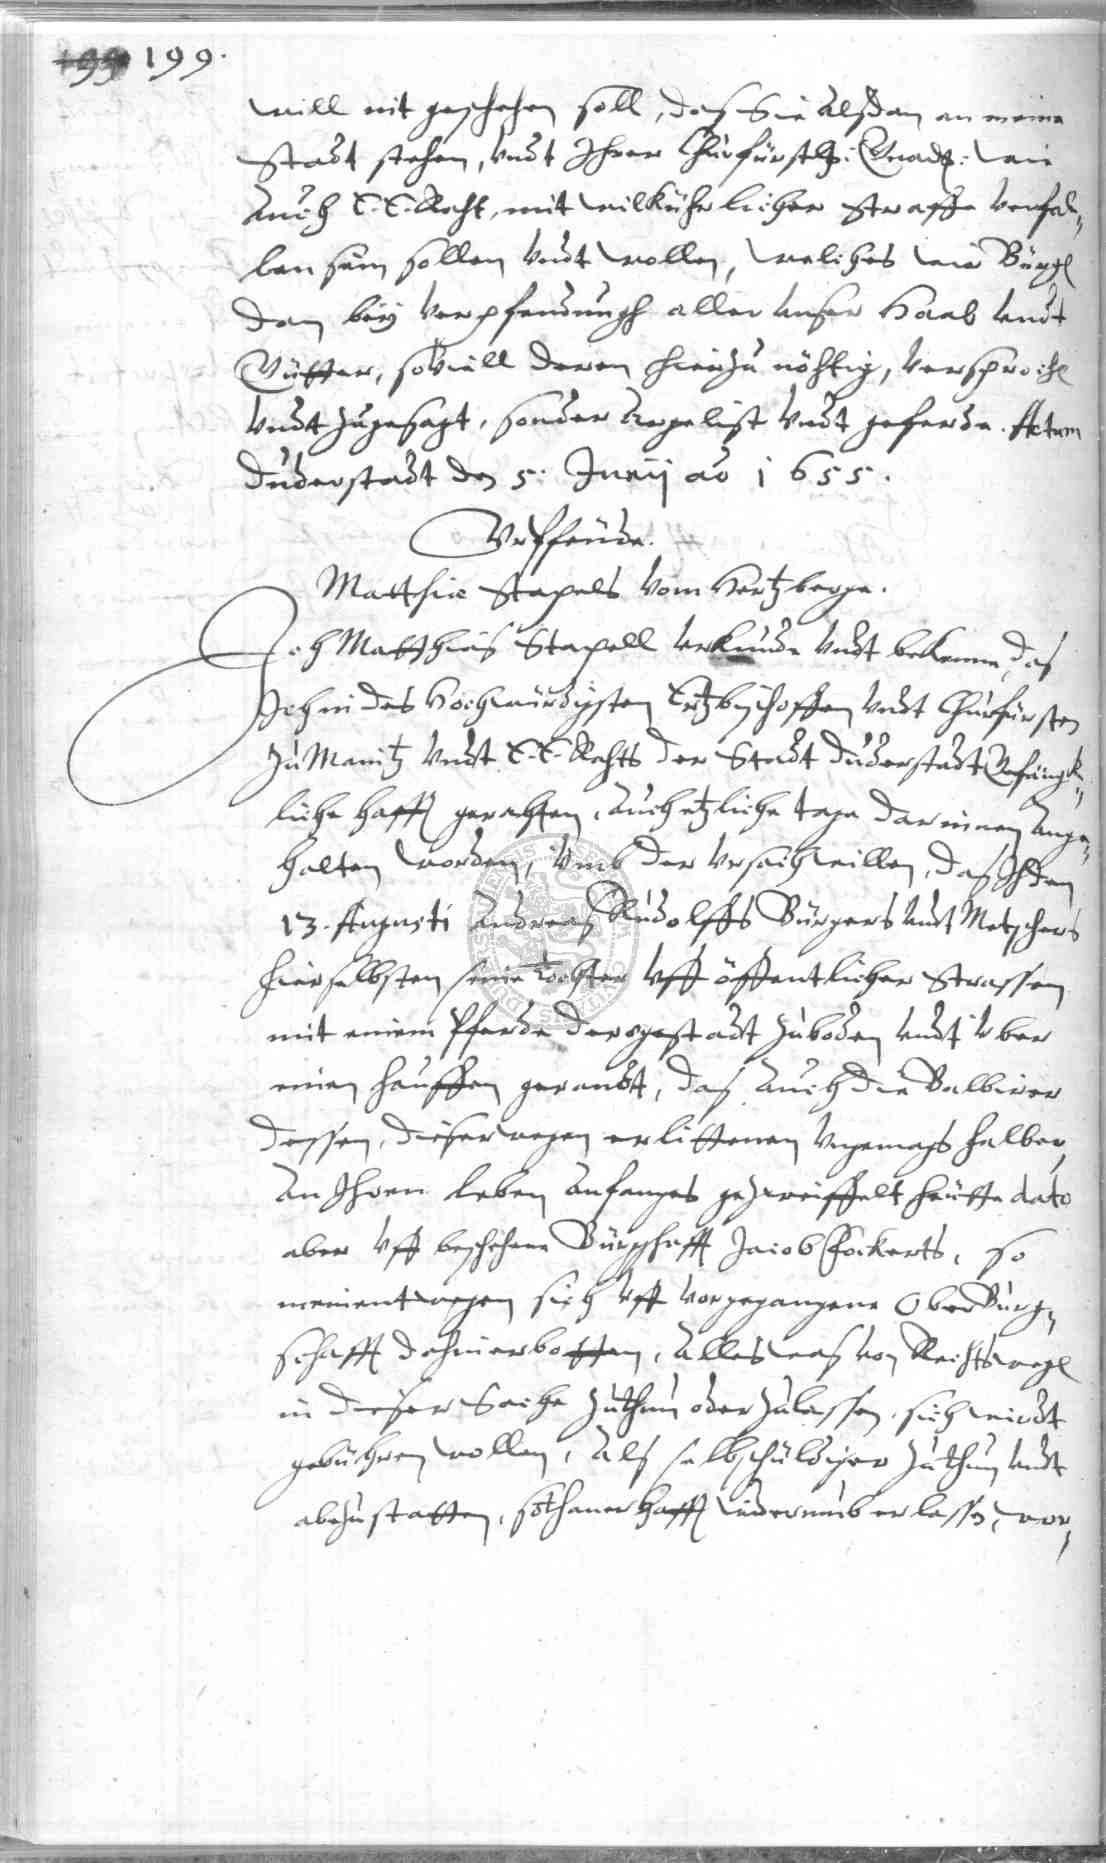 199 199.
will nit geschehen soll, das Sie alßdan an meine
Stadt stehen, undt Ihrer Churfürstlz: Gnadz: wie
Auch E. E. Raht, mit wilkührlicher Straffe verfal-
len sein sollen undt wollen, welches wir Bürgen
dan bey verpfendungh aller unser Haab undt
Gütter, soviell deren hierzu nöhtig, versprochen
undt zugesagt, sonder Argelist undt geferde. Actum
Duderstadt den 5. Junij ao 1655.
Urpfeude.
Matthiæ Stapels vom Hertzberge.
Ich Matthias Stapell urkunde undt bekenne, das
Ich in des Hochwürdigsten Ertzbischoffen undt Churfürsten
zu Maintz undt E. E. Rahts der Stadt Duderstadt Gefängk-
liche hafft gerahten, Auch etzliche tage darinnen Ange-
halten worden, Umb der Ursach willen, das Ich den
13. Augusti Andreas Rudolffs Bürgers undt Metschers
hierselbsten seine Tochter uff öffentlicher Strassen
mit einem Pferde derogestadt zuboden undt uber
einen hauffen gerandt, das Auch die Balbirer
dessen, dieserwegen erlittenen Ungemachs halber,
An Ihren leben Anfanges gezweiffelt heutte dato
aber uff beschehene Bürgschafft Jacob Eckerts, so
meinentwegen sich uff vorgegangene Ober Bürg-
schafft dahin erbotten, Alles was von Rechts wegen
in dieser Sache zuthun oder zulassen, sich wirdt
gebühren wollen, Als selbschüldiger zuthun undt
abzustatten, sothaner hafft wiederumb erlassen, wor-